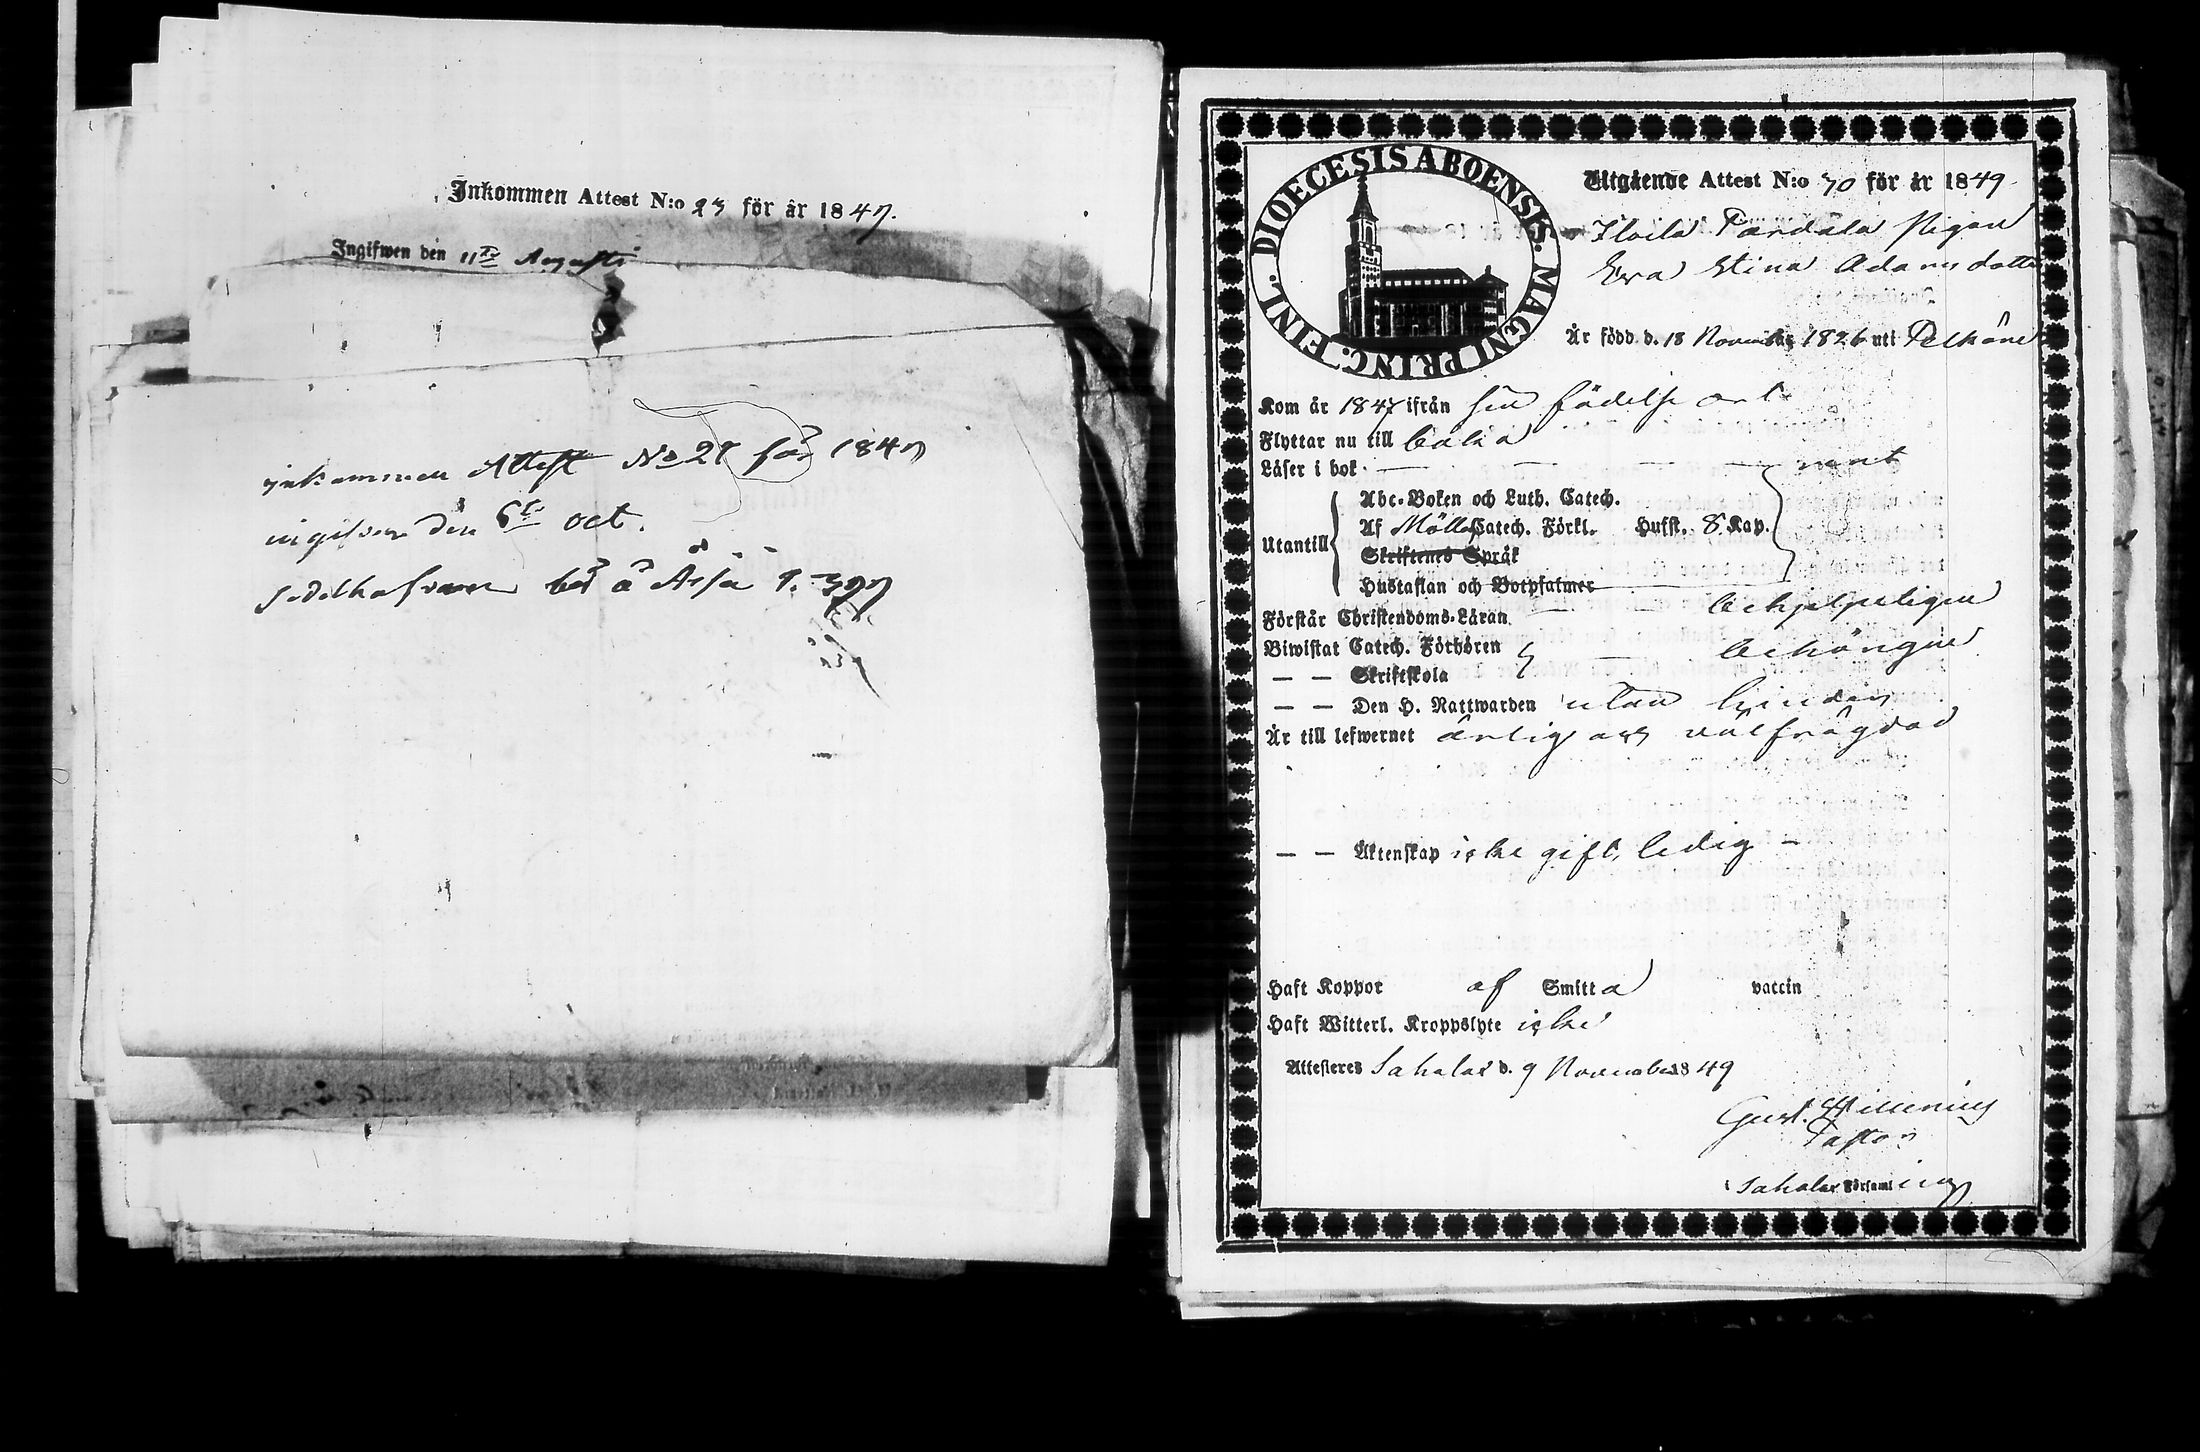 Inkommen Attest N:o 23 för år 1847.
Ingifwen den 11te Augusti
inkommen Attest No 27 för 1847
ingifven den 6te oct.
sedelhafvaren bor å
DIOECESIS ABOENSIS. MAGNI PRINC. FINL.
Utgående Attest N:o 70 för år 1849
Pigan
Eva Stina Adamsdotter
Är född d. 18 November 1826 uti Pelkäne
Kom år 1847 ifrån sin födelse ort
Flyttar nu till
Läser i bok - - - - rent
Utantill
Abc-Boken och Luth. Catech.
Af Catech. Förkl. Hufst. 8 Kap.
Skriftenes Språk
Hustaflan och Botpsalmer
Förstår Christendoms-Läran - - behjelpeligen
Biwistat Catech. Förhören - behörigen
— — Skriftskola
— — Den H. Nattwarden utan hinder
Är till lefwernet ärlig och välfrägdad
— — Äktenskap icke gift, ledig -
Haft Koppor af Smitta vaccin
Haft Witterl. Kroppslyte icke
Attesteras Sahalax d. 9 November 1849
Gust.
Pastor
i Sahalax Församling